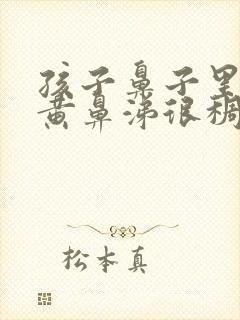 孩子鼻子里
黄鼻涕很稠
松本真